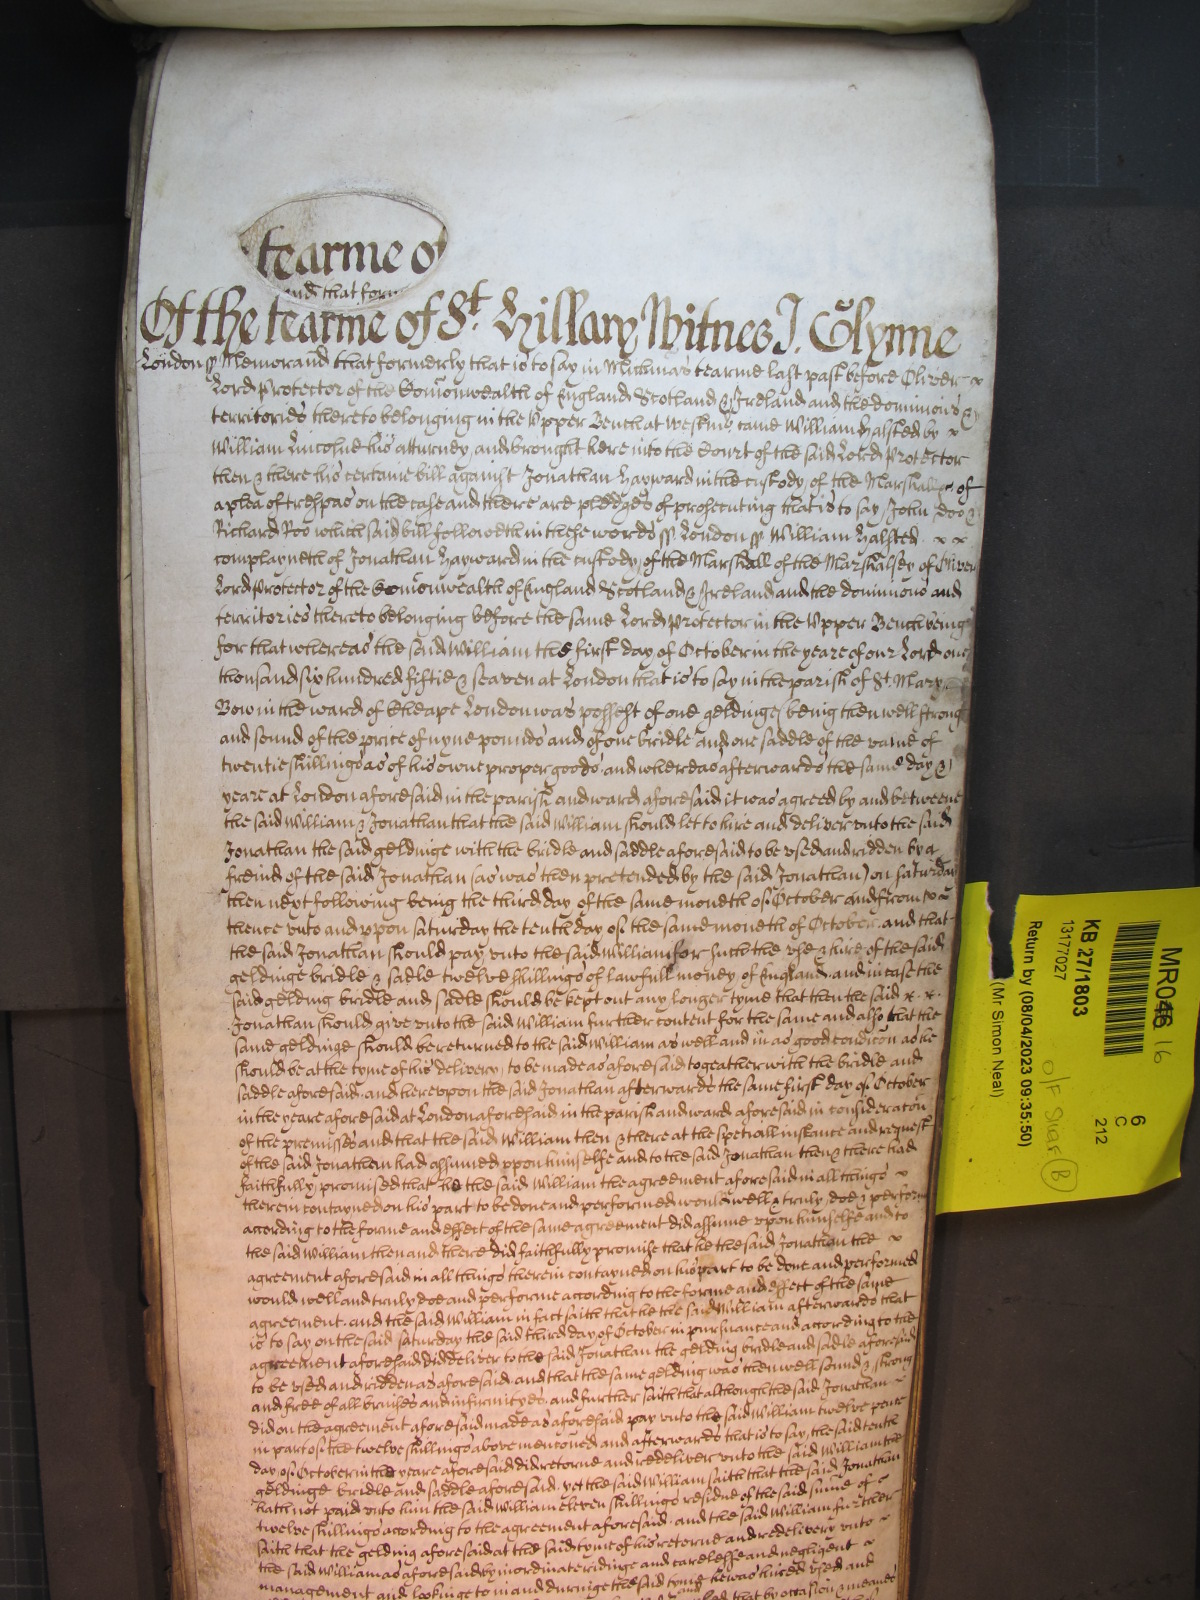 tearme of
and that form
Of the tearme of St. Hillary Witnes J. Glynne
London ss Memorand that formerly that is to say in Michmas tearme last past before Oliver
Lord Protector of the Comonwealth of England Scotland & Ireland and the dominions &
territories thereto belonging in the Upper Bench at Westmr came William Halsted by
William Lincolne his atturney, and brought here into the Court of the said Lord Protector
then & there his certaine bill against Jonathan Hayward in the custody of the Marshall &c of
a plea of trespas on the case and there are pledges of prosecuting that is to say John Doo &
Richard Roo which said bill followeth in these words ss London ss William Halsted
complayneth of Jonathan Hayward in the custody of the Marshall of the Marshalsey of Oliver
Lord Protector of the Comonwealth of England Scotland & Ireland and the dominions and
territories thereto belonging before the same Lord Protector in the Upper Bench being
for that whereas the said William the first day of October in the yeare of our Lord one
thousand six hundred fiftie & seaven at London that is to say in the parish of St. Mary
Bow in the ward of Cheape London was possest of one geldinge (being then well strong
and sound of the price of nyne pounds and of one bridle and one saddle of the value of
twentie shillings as of his owne proper goods and whereas afterwards the same day &
yeare at London aforesaid in the parish and ward aforesaid it was agreed by and betweene
the said William & Jonathan that the said William should let to hire and deliver unto the said
Jonathan the said geldinge with the bridle and saddle aforesaid to be used and ridden by a
freind of the said Jonathan (as was then pretended by the said Jonathan) on Saturday
then next following being the third day of the same moneth of October and from
thence unto and uppon Saturday the tenth day of the same moneth of October. and that
the said Jonathan should pay unto the said William for such the use & hire of the said
geldinge bridle & sadle twelve shillings of lawfull money of England and in case the
said gelding bridle and sadle should be kept out any longer tyme that then the said
Jonathan should give unto the said William further content for the same and also that the
same geldinge should be returned to the said William as well and in as good condicon as he
should be at the tyme of his delivery to be made as aforesaid togeather with the bridle and
saddle aforesaid. and thereupon the said Jonathan afterwards the same first day of October
in the yeare aforesaid at London aforesaid in the parish and ward aforesaid in consideracon
of the premisses and that the said William then & there at the speciall instance and request
of the said Jonathan had assumed uppon himselfe and to the said Jonathan then & there had
faithfully promised that he the said William the agreement aforesaid in all things
therein contayned on his part to be done and performed would well & truly doe & performe
according to the forme and effect of the same agreement did assume upon himselfe and to
the said William then and there did faithfully promise that he the said Jonathan the
agreement aforesaid in all things therein contayned on his part to be done and performed
would well and truly doe and performe according to the forme and effect of the same
agreement. and the said William in fact saith that he the said William afterwards that
is to say on the said Saturday the said third day of October in pursuance and according to the
agreement aforesaid did deliver to the said Jonathan the gelding bridle and sadle aforesaid
to be used and ridden as aforesaid. and that the same gelding was then well sound & strong
and free of all bruises and infirmityes. and further saith that although the said Jonathan
did on the agreement aforesaid made as aforesaid pay unto the said William twelve pence
in part of the twelve shillings above mencioned and afterwards that is to say, the said tenth
day of October in the yeare aforesaid did retorne and redeliver unto the said William the
geldinge bridle and saddle aforesaid. yet the said William saith that the said Jonathan
hath not paid unto him the said William eleven shillings residue of the said summe of
twelve shillings according to the agreement aforesaid. and the said William further
saith that the gelding aforesaid at the said tyme of his retorne and redelivery unto
the said William as aforesaid by inordinate ridinge and carelesse and negligent
management and lookinge to in and duringe the said tyme he was hired used and
that by occasion & meanes
MR046 16
KB 27/1803
13177027
Return by (08/04/2023 09:35:50)
(Mr Simon Neal)
6
C
212
O/F Shelf B